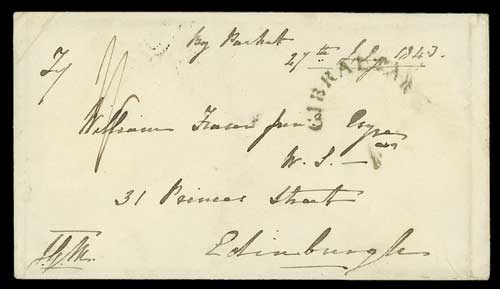 By Packet
27th July 1843.
GIBRALTAR
William Fraser Junr Esqre
W. S.
31 Princes Street
Edinburgh